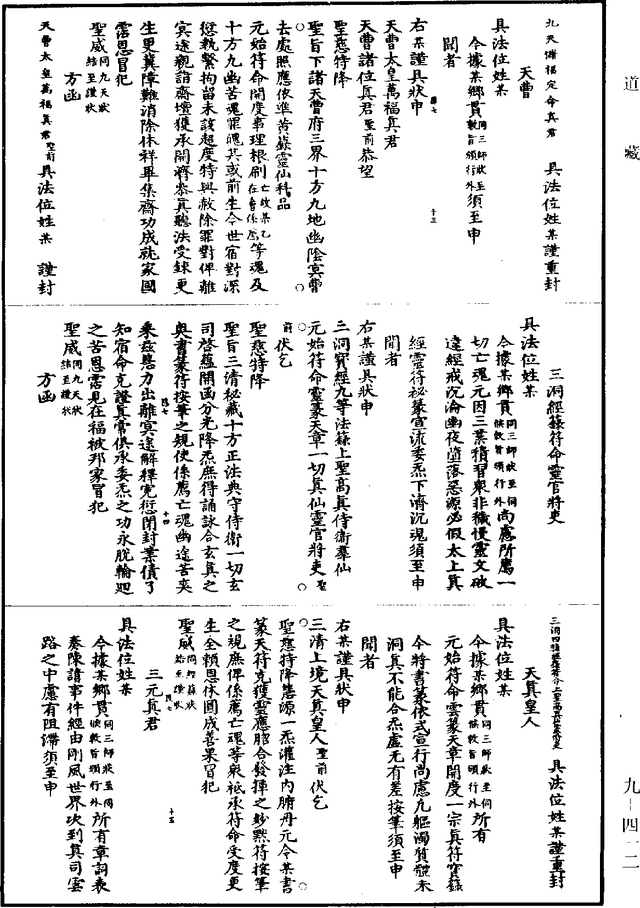 道藏
九天儲福定命真君　具法位姓某謹重封
天曹
具法位姓某
今據某鄉貫同三師狀至伺候敕旨頒行外須至申
聞者
右某謹具狀申
天曹太皇萬福真君
天曹諸位真君聖前恭望
聖慈特降
聖旨下諸天曹府三界十方九地幽陰冥曹
去處照應依準黃籙靈仙科品
元始符命開度事理根刷亡故某乙在會係薦等魂及
十方九幽苦魂罪魄其或前生今世宿對深
愆執繫拘留未該超度特與赦除罪對俾離
冥途親詣齋壇獲承開濟恭真聽法受鍊更
生更冀障難消除休祥畢集齋功成就家國
霑恩冒犯
聖威同九天狀結至謹狀
方函
天曹太皇萬福真君聖前　具法位姓某　謹封
三洞經籙符命靈官將吏
具法位姓某
今據某鄉貫同三師狀至伺候敕旨頒行外尚慮所薦一
切亡魂元因三業積習衆非穢慢靈文破
違經戒沉淪幽夜墮落惡源必假太上真
經靈符秘篆宣流委炁下濟沉魂須至申
聞者
右某謹具狀申
三洞寶經九等法籙上聖高真侍衛羣仙
元始符命靈篆天章一切真仙靈官將吏聖
前伏乞
聖慈特降
聖旨三清秘藏十方正法典守侍衛一切玄
司啓蘊開函分光降炁庶得誦詠合玄真之
奧書篆符按筆之規使係薦亡魂幽途苦爽
乘兹慧力出離冥途解釋宽愆閉封業債了
知宿命克證真常俱承委炁之功永脫輪廻
之苦恩霑見在福被邦家冒犯
聖威同九天狀結至謹狀
方函
具法位姓某謹重封
天真皇人
具法位姓某
今據某鄉貫同三師狀至伺候敕旨頒行外所有
元始符命雲篆天章開度一宗真符寶籙
今特書篆依式宣行尚慮九軀濁質體未
洞真不能合炁虛无有差按筆須至申
聞者
右某謹具狀申
三清上境天真皇人聖前伏乞
聖慈特降慧源一炁灌注內腑丹元令某書
篆天符克獲靈應脗合發揮之妙點符按筆
之規庶俾係薦亡魂等衆祇承符命受度更
生全賴恩休圓成善果冒犯
聖威同經籙狀結至謹狀
三元真君
具法位姓某
今據某鄉貫同三師狀至伺候敕旨頒行外所有章詞表
奏陳請事件經由剛風世界次到真司雲
路之中慮有阻滯須至申
九-四二二